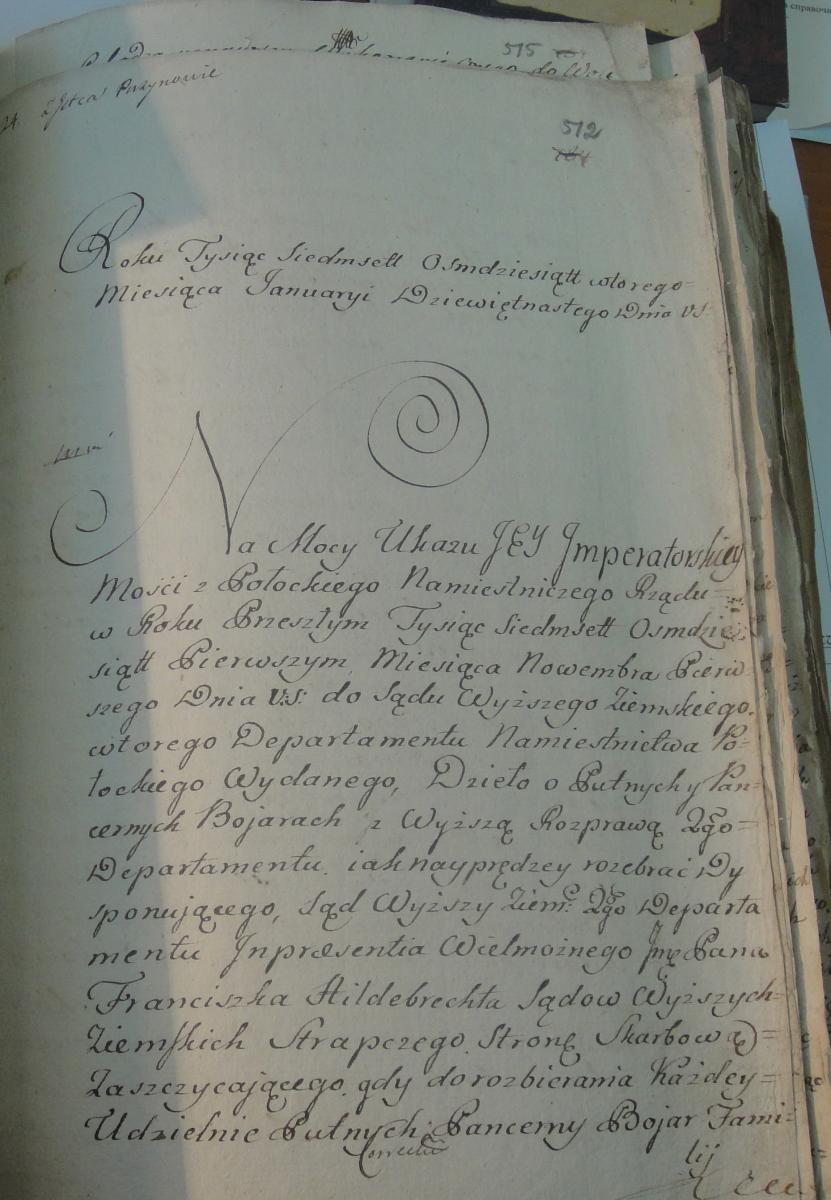 515
do
24
512
Roku Tysiąc Siedmsett Osmdziesiątt wtorego=
Miesiąca Januaryi Dziewiętnastego Dnia VS:
Na Mocy Ukazu JEY Jmperatorskiey
Mości z Połockiego Namiestniczego Rządu=
w Roku Przeszłym Tysiąc Siedmsett Osmdzie=
siątt Pierwszym Miesiąca Nowembra Pierw=
szego Dnia V:S: do Sądu Wyższego Ziemskiego.
wtorego Departamentu Namiestnictwa Po=
łockiego Wydanego, Dzieło o Putnych y Pan=
cernych Bojarach z Wyższą Rozprawą 2go=
Departamentu iak nayprędzey rozebrać Dy
sponującego, Sąd Wyższy Ziem: 2go Departa
mentu Jnpræsentia Wielmożnego Jmę Pana
Franciszka Hildebrechta Sądow Wyższych=
Ziemskich Strapczego Stronę Skarbową=
Zaszczycającego gdy do rozbierania Każdey=
Udzielnie Putnych Pancerny Bojar Fami=
lij